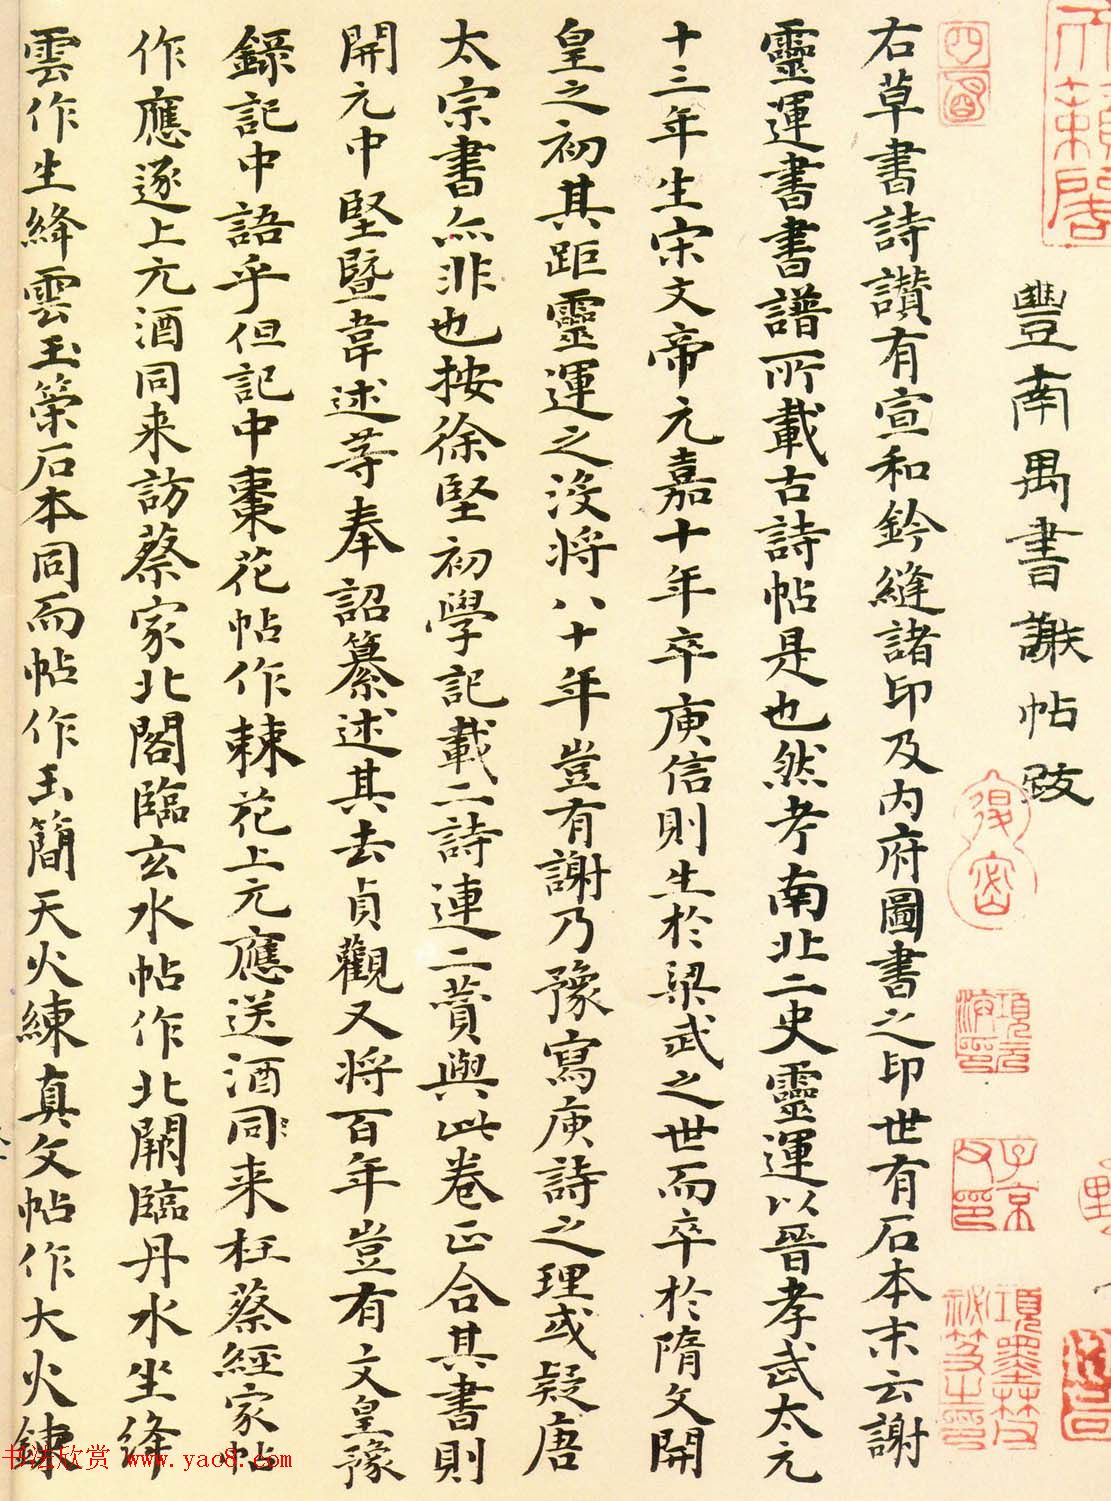 豐南禺書謝帖跋
右草書詩讃有宣和鈐縫諸印及内府圖書之印世有石本末云謝
靈運書書譜所載古詩帖是也然考南北二史靈運以晉孝武太元
十三年生宋文帝元嘉十年卒庾信則生於梁武之世而卒於隋文開
皇之初其距靈運之沒將八十年豈有謝乃豫寫庾詩之理或疑唐
太宗書亦非也按徐堅初學記載二詩連二賛與此卷正合其書則
開元中堅暨韋述等奉詔纂述其去貞觀又將百年豈有文皇豫
錄記中語乎但記中棗花帖作棘花上元應送酒同来枉蔡經家帖
作應逐上元酒同来訪蔡家北閣臨玄水帖作北闕臨丹水坐絳
雲作生絳雲玉策石本同而帖作玉簡天火練真文帖作大火鍊
天籟閣
項元汴印
子京父印
項墨林祕笈之印
书法欣赏 www.yac8.com